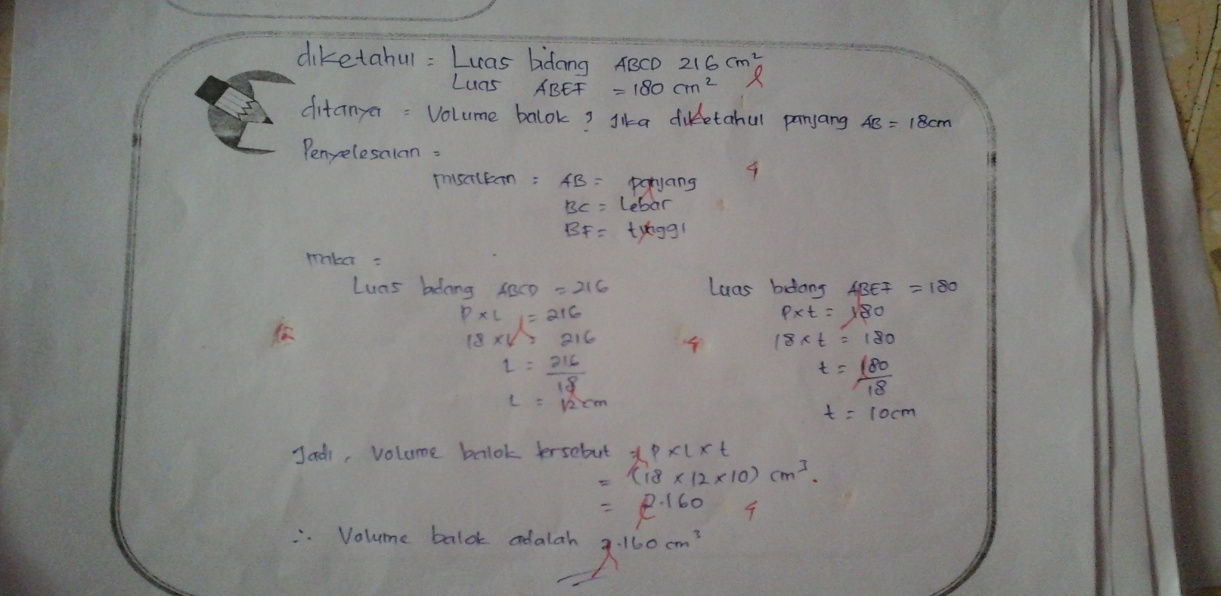 diketahui = Luas bidang ABCD 216 cm²
Luas ABEF = 180 cm²
ditanya = Volume balok ? Jika diketahui panjang AB = 18cm
Penyelesaian =
misalkan : AB = panjang
BC = Lebar
BF = tinggi
4
maka =
Luas bidang ABCD = 216
P x L = 216
18 x L = 216
L = 216
18
L = 12 cm
12
Luas bidang ABEF = 180
P x t = 180
18 x t = 180
t = 180
18
t = 10cm
4
Jadi, Volume balok tersebut = P x L x t
= (18 x 12 x 10) cm³.
= 2.160
4
∴ Volume balok adalah 2.160 cm³